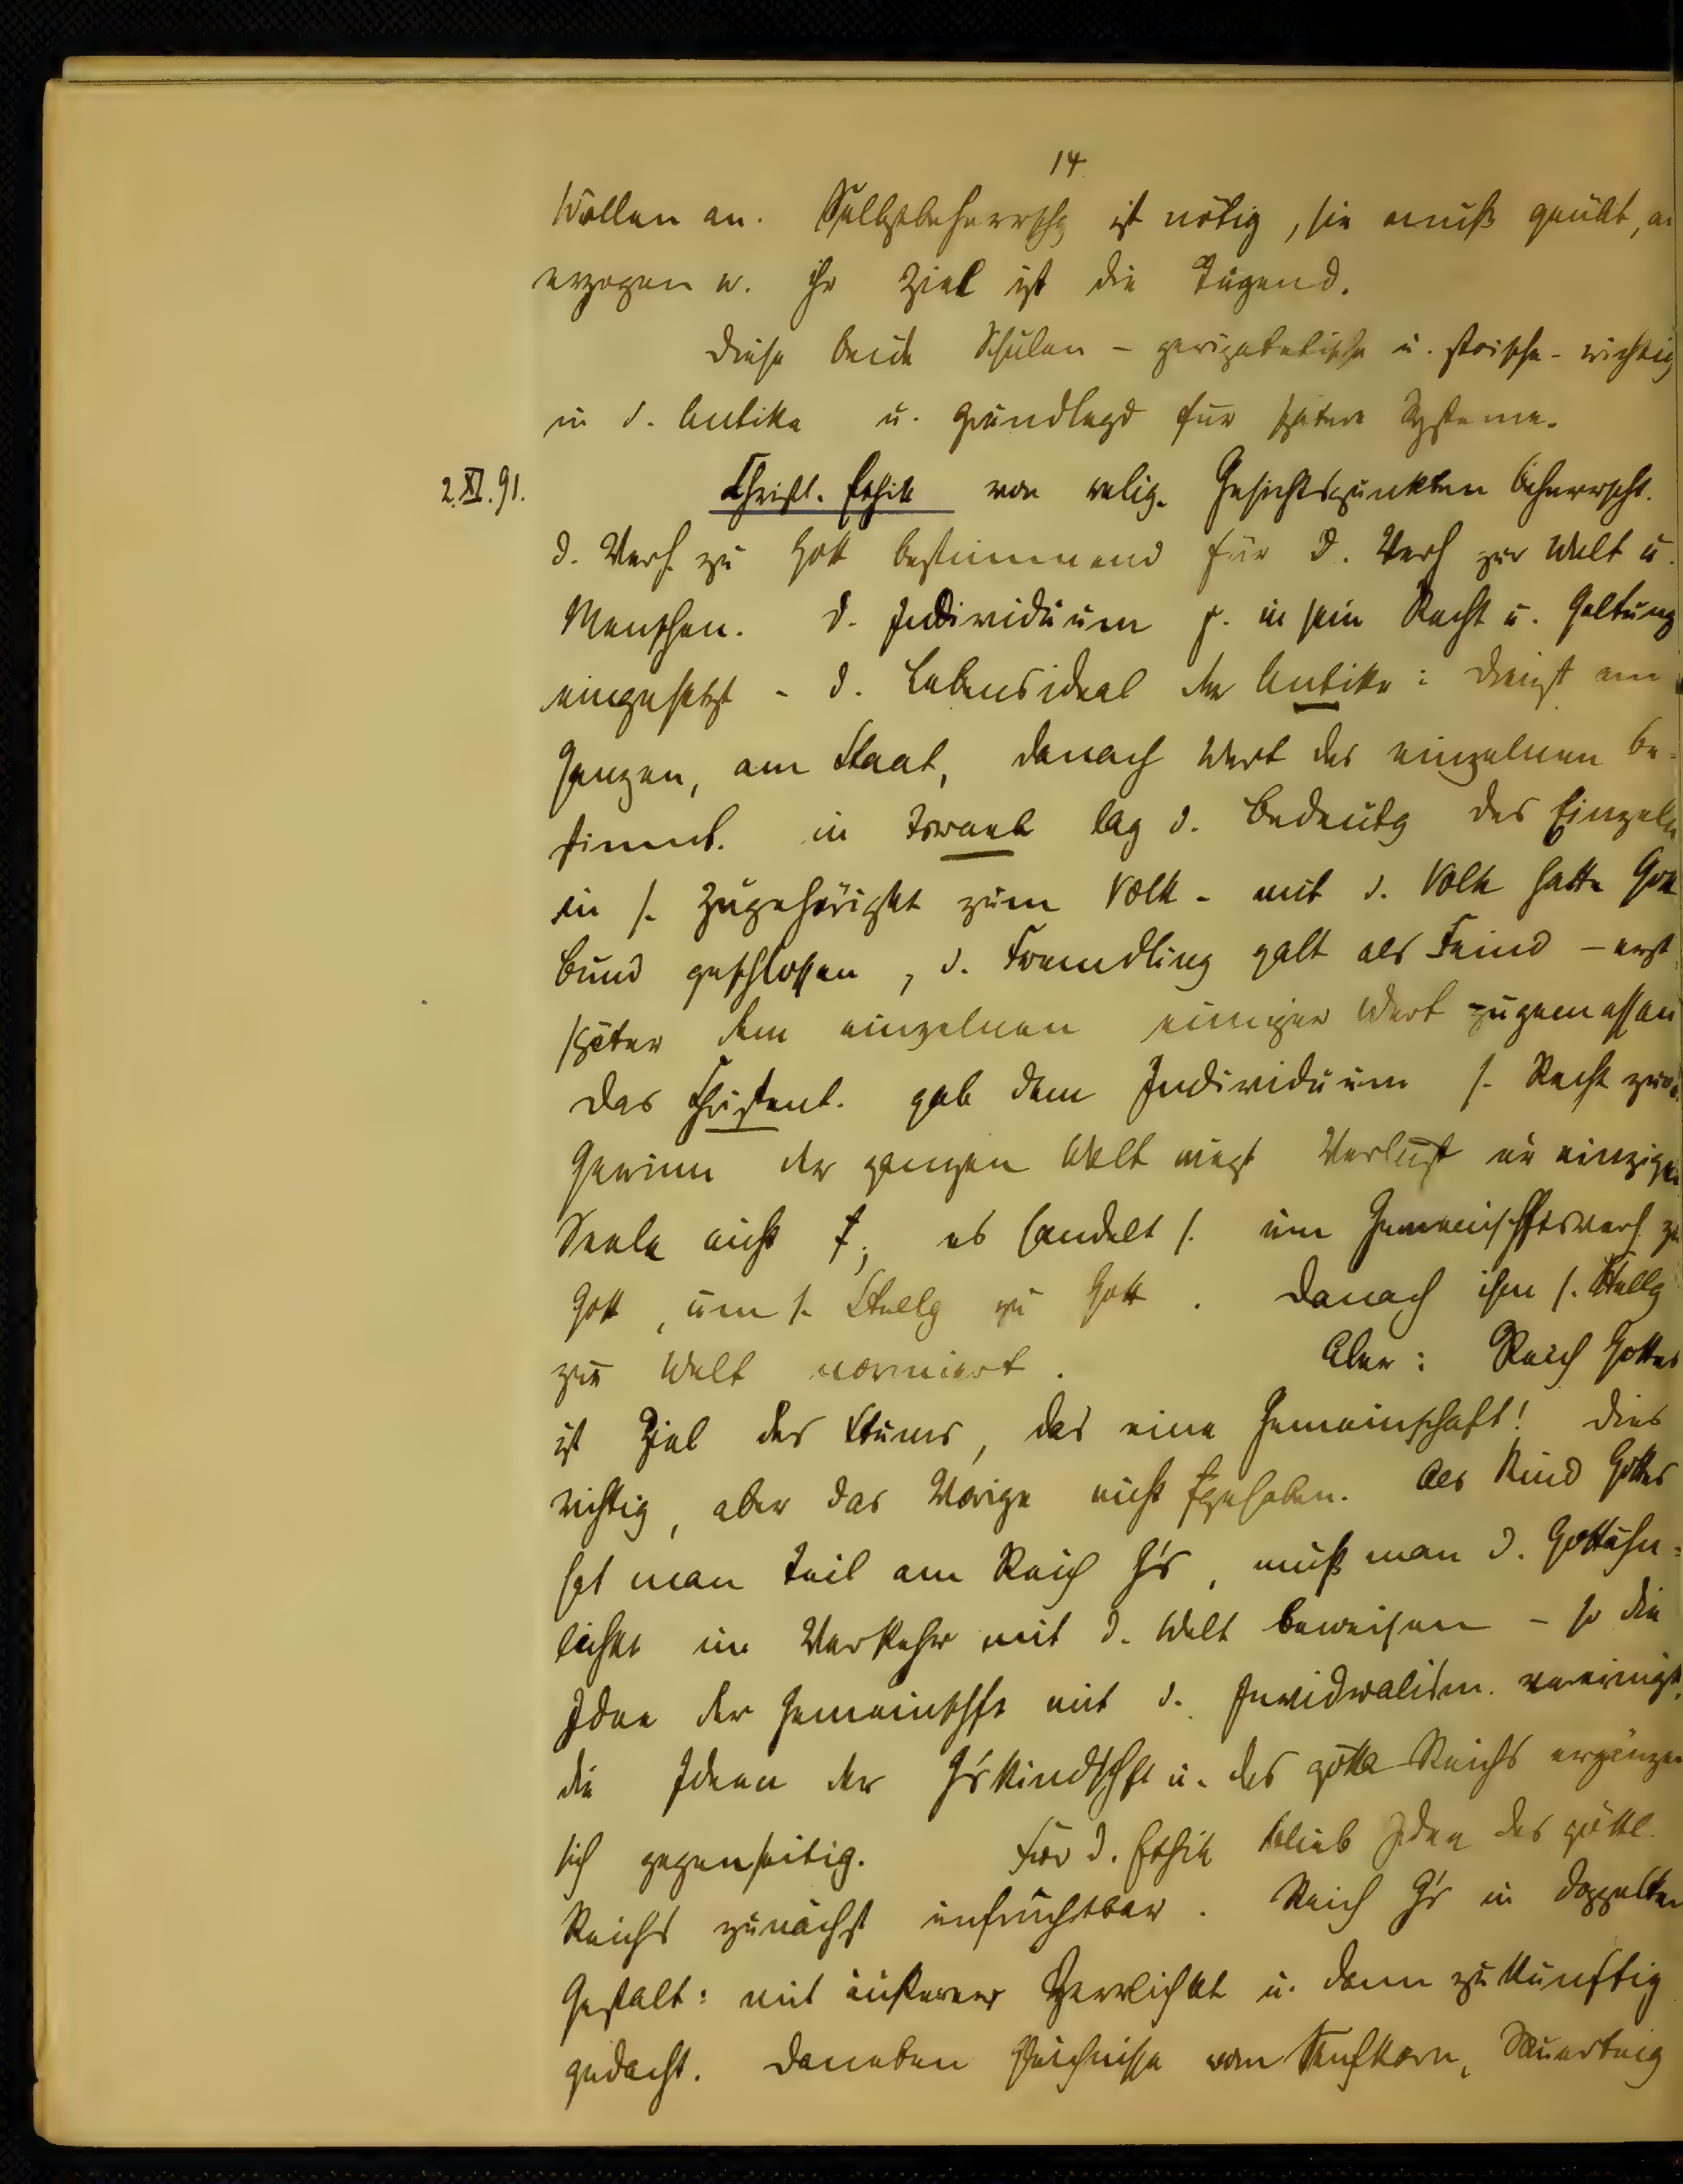 14
Wollen an. Selbstbeherrschg ist nötig, sie muß geübt, an
erzogen w. ihr Ziel ist die Tugend.
Diese beide Schulen – peripatetische u. stoische – wichtig
in d. Antike u. grundlegd für spätere Systeme.
2.XI.91.
Christl. Ethik von relig. Gesichtspunkten beherrscht.
D. Verh. zu Gott bestimmend für D. Verh zur Welt u.
Menschen. D. Individuum in sein Recht u. Geltung
eingesetzt - D. Lebensideal der Antike: Dienst am
Ganzen, am Staat, danach Wert des einzelnen be-
stimmt. in Israel lag d. Bedeutg des Einzeln
in s. Zugehörigkt zum Volk - mit d. Volk hatte Gott
Bund geschlossen, d. Fremdling galt als Feind – erst
später dem einzelnen einiger Wert zugemessen
Das Christent. gab dem Individuum s. Recht
Gewinn der ganzen Welt wiegt Verlust er einzigen
Seele nicht f; es handelt s. um Gemeinschftsverh. zu
Gott, um s. Stellg zu Gott. Danach ihm s. Stellg
zur Welt normiert. Aber: Reich Gottes
ist Ziel des Xtums, das eine Gemeinschaft! Dies
richtig, aber das Vorige nicht fgehoben. Als Kind Gottes
hat man teil am Reich G's, muß man d. Gottähn-
lichkt im Verkehr mit d. Welt beweisen – so die
Idee der Gemeinschft mit d. Invidualism. vereinigt,
die Ideen der G'skindschft u. des göttl Reichs ergänzen
sich gegenseitig. Für d. Ethik blieb Idee des göttl.
Reichs zunächst unfruchtbar. Reich G's in doppelter
Gestalt: mit äußerer Herrlichkt u. dann zukünftig
gedacht. Daneben Gleichnisse vom Senfkorn, Sauerteig